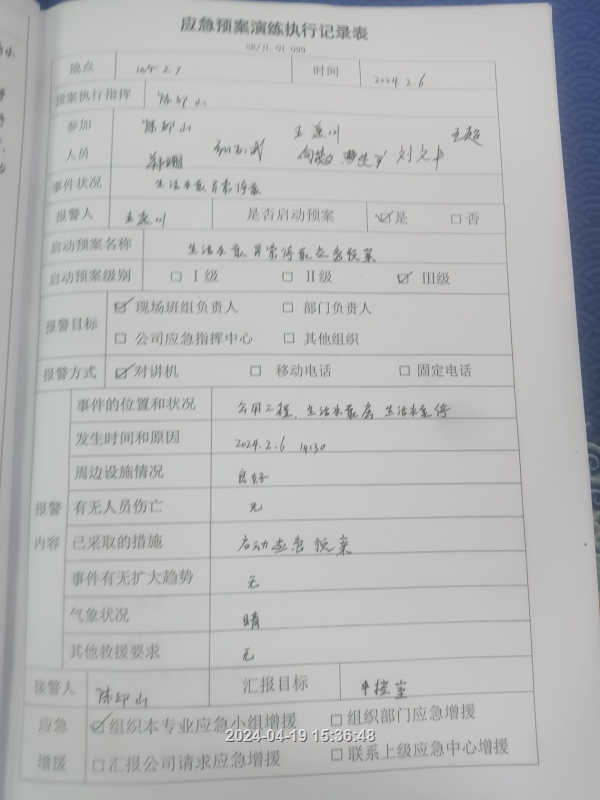 应急预案演练执行记录表
SR/JL-01-099
地点 时间 2024.2.6
预案执行指挥 陈印山
参加人员 陈印山 王莲川 王超
刘文丰
事件状况 生活水泵异常停泵
报警人 王莲川 是否启动预案 ☑是 □否
启动预案名称 生活水泵异常停泵应急预案
启动预案级别 □ I级 □ II级 ☑ III级
报警目标 ☑ 现场班组负责人 □ 部门负责人
□ 公司应急指挥中心 □ 其他组织
报警方式 ☑ 对讲机 □ 移动电话 □ 固定电话
报警内容
事件的位置和状况 公用工程、生活水泵房 生活水泵停
发生时间和原因 2024.2.6 14:30
周边设施情况 良好
有无人员伤亡 无
已采取的措施 启动应急预案
事件有无扩大趋势 无
气象状况 晴
其他救援要求 无
接警人 陈印山 汇报目标 中控室
应急增援 ☑组织本专业应急小组增援 □组织部门应急增援
□汇报公司请求应急增援 □联系上级应急中心增援
2024-04-19 15:36:48